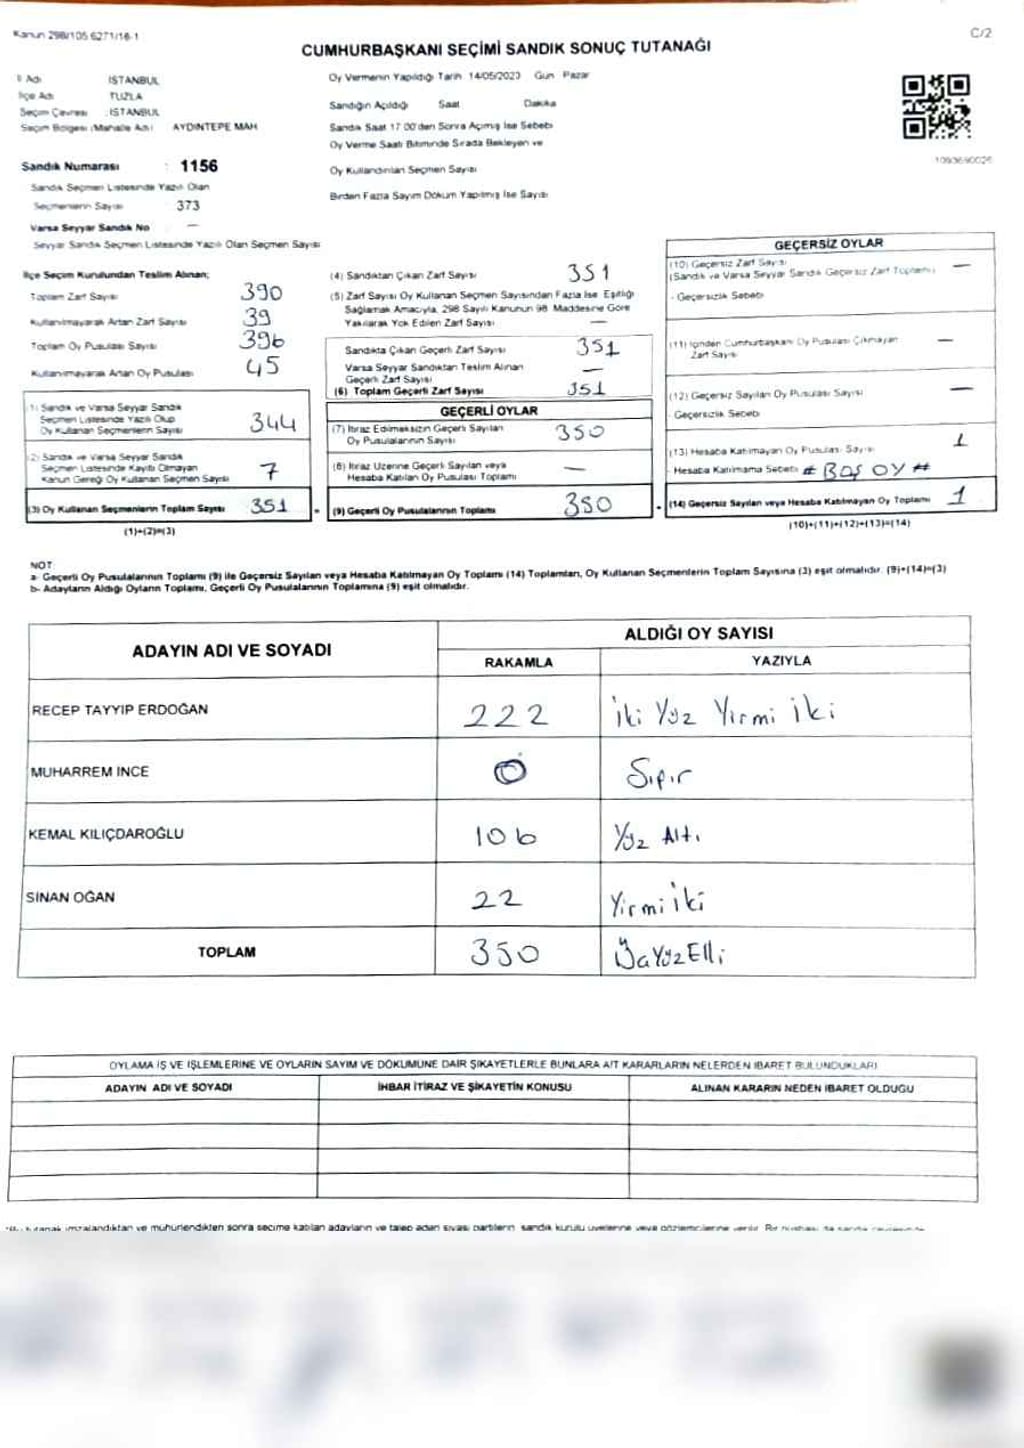 Kanun 298/105 6271/18-1
C/2
CUMHURBAŞKANI SEÇİMİ SANDIK SONUÇ TUTANAĞI
İl Adı İSTANBUL
İlçe Adı TUZLA
Seçim Çevresi : İSTANBUL
Seçim Bölgesi (Mahalle Adı) AYDINTEPE MAH
Sandık Numarası : 1156
Sandık Seçmen Listesinde Yazılı Olan
Seçmenlerin Sayısı 373
Varsa Seyyar Sandık No —
Seyyar Sandık Seçmen Listesinde Yazılı Olan Seçmen Sayısı
Oy Vermenin Yapıldığı Tarih 14/05/2023 Gün Pazar
Sandığın Açıldığı Saat Dakika
Sandık Saat 17 00'den Sonra Açılmış İse Sebebi
Oy Verme Saati Bitiminde Sırada Bekleyen ve
Oy Kullandırılan Seçmen Sayısı
Birden Fazla Sayım Döküm Yapılmış İse Sayısı
İlçe Seçim Kurulundan Teslim Alınan;
Toplam Zarf Sayısı 390
Kullanılmayarak Artan Zarf Sayısı 39
Toplam Oy Pusulası Sayısı 396
Kullanılmayarak Artan Oy Pusulası 45
(1) Sandık ve Varsa Seyyar Sandık
Seçmen Listesinde Yazılı Olup
Oy Kullanan Seçmenlerin Sayısı 344
(2) Sandık ve Varsa Seyyar Sandık
Seçmen Listesinde Kayıtlı Olmayan
Kanun Gereği Oy Kullanan Seçmen Sayısı 7
(3) Oy Kullanan Seçmenlerin Toplam Sayısı 351
(1)+(2)=(3)
(4) Sandıktan Çıkan Zarf Sayısı 351
(5) Zarf Sayısı Oy Kullanan Seçmen Sayısından Fazla İse, Eşitliği
Sağlamak Amacıyla, 298 Sayılı Kanunun 98. Maddesine Göre
Yakılarak Yok Edilen Zarf Sayısı —
Sandıkta Çıkan Geçerli Zarf Sayısı 351
Varsa Seyyar Sandıktan Teslim Alınan
Geçerli Zarf Sayısı —
(6) Toplam Geçerli Zarf Sayısı 351
GEÇERLİ OYLAR
(7) İtiraz Edilmeksizin Geçerli Sayılan
Oy Pusulalarının Sayısı 350
(8) İtiraz Üzerine Geçerli Sayılan veya
Hesaba Katılan Oy Pusulası Toplamı —
(9) Geçerli Oy Pusulalarının Toplamı 350
GEÇERSİZ OYLAR
(10) Geçersiz Zarf Sayısı
(Sandık ve Varsa Seyyar Sandık Geçersiz Zarf Toplamı) —
- Geçersizlik Sebebi
(11) İçinden Cumhurbaşkanı Oy Pusulası Çıkmayan
Zarf Sayısı —
(12) Geçersiz Sayılan Oy Pusulası Sayısı —
- Geçersizlik Sebebi
(13) Hesaba Katılmayan Oy Pusulası Sayısı 1
- Hesaba Katılmama Sebebi # BOŞ OY #
(14) Geçersiz Sayılan veya Hesaba Katılmayan Oy Toplamı 1
(10)+(11)+(12)+(13)=(14)
NOT:
a- Geçerli Oy Pusulalarının Toplamı (9) ile Geçersiz Sayılan veya Hesaba Katılmayan Oy Toplamı (14) Toplamları, Oy Kullanan Seçmenlerin Toplam Sayısına (3) eşit olmalıdır. (9)+(14)=(3)
b- Adayların Aldığı Oyların Toplamı, Geçerli Oy Pusulalarının Toplamına (9) eşit olmalıdır.
ADAYIN ADI VE SOYADI
ALDIĞI OY SAYISI
RAKAMLA YAZIYLA
RECEP TAYYIP ERDOĞAN 222 İki Yüz Yirmi İki
MUHARREM İNCE 0 Sıpır
KEMAL KILIÇDAROĞLU 106 Yüz Altı
SİNAN OĞAN 22 Yirmi İki
TOPLAM 350
OYLAMA İŞ VE İŞLEMLERİNE VE OYLARIN SAYIM VE DÖKÜMÜNE DAİR ŞİKAYETLERLE BUNLARA AİT KARARLARIN NELERDEN İBARET BULUNDUKLARI
ADAYIN ADI VE SOYADI İHBAR İTİRAZ VE ŞİKAYETİN KONUSU ALINAN KARARIN NEDEN İBARET OLDUĞU